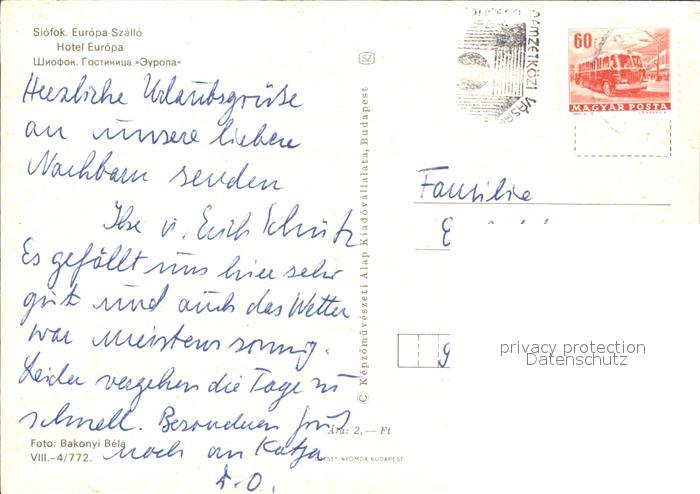 Siófok. Európa Szálló
Hotel Európa
Шиофок. Гостиница »Эуропа«
Herzliche Urlaubsgrüße
an unsere lieben
Nachbarn senden
Ilse u. Erich Schütz
Es gefällt uns hier sehr
gut und auch das Wetter
war meistens sonnig.
Leider vergehen die Tage zu
schnell. Besonderen Gruß
noch an Katja
D. O.
Foto: Bakonyi Béla
VIII.–4/772.
SZ
© Képzőművészeti Alap Kiadóvállalata, Budapest
Ára: 2,— Ft
OFSET-NYOMDA, BUDAPEST
NEMZETKÖZI VÁSÁR
60
MAGYAR POSTA
Familie
E
9
privacy protection
Datenschutz